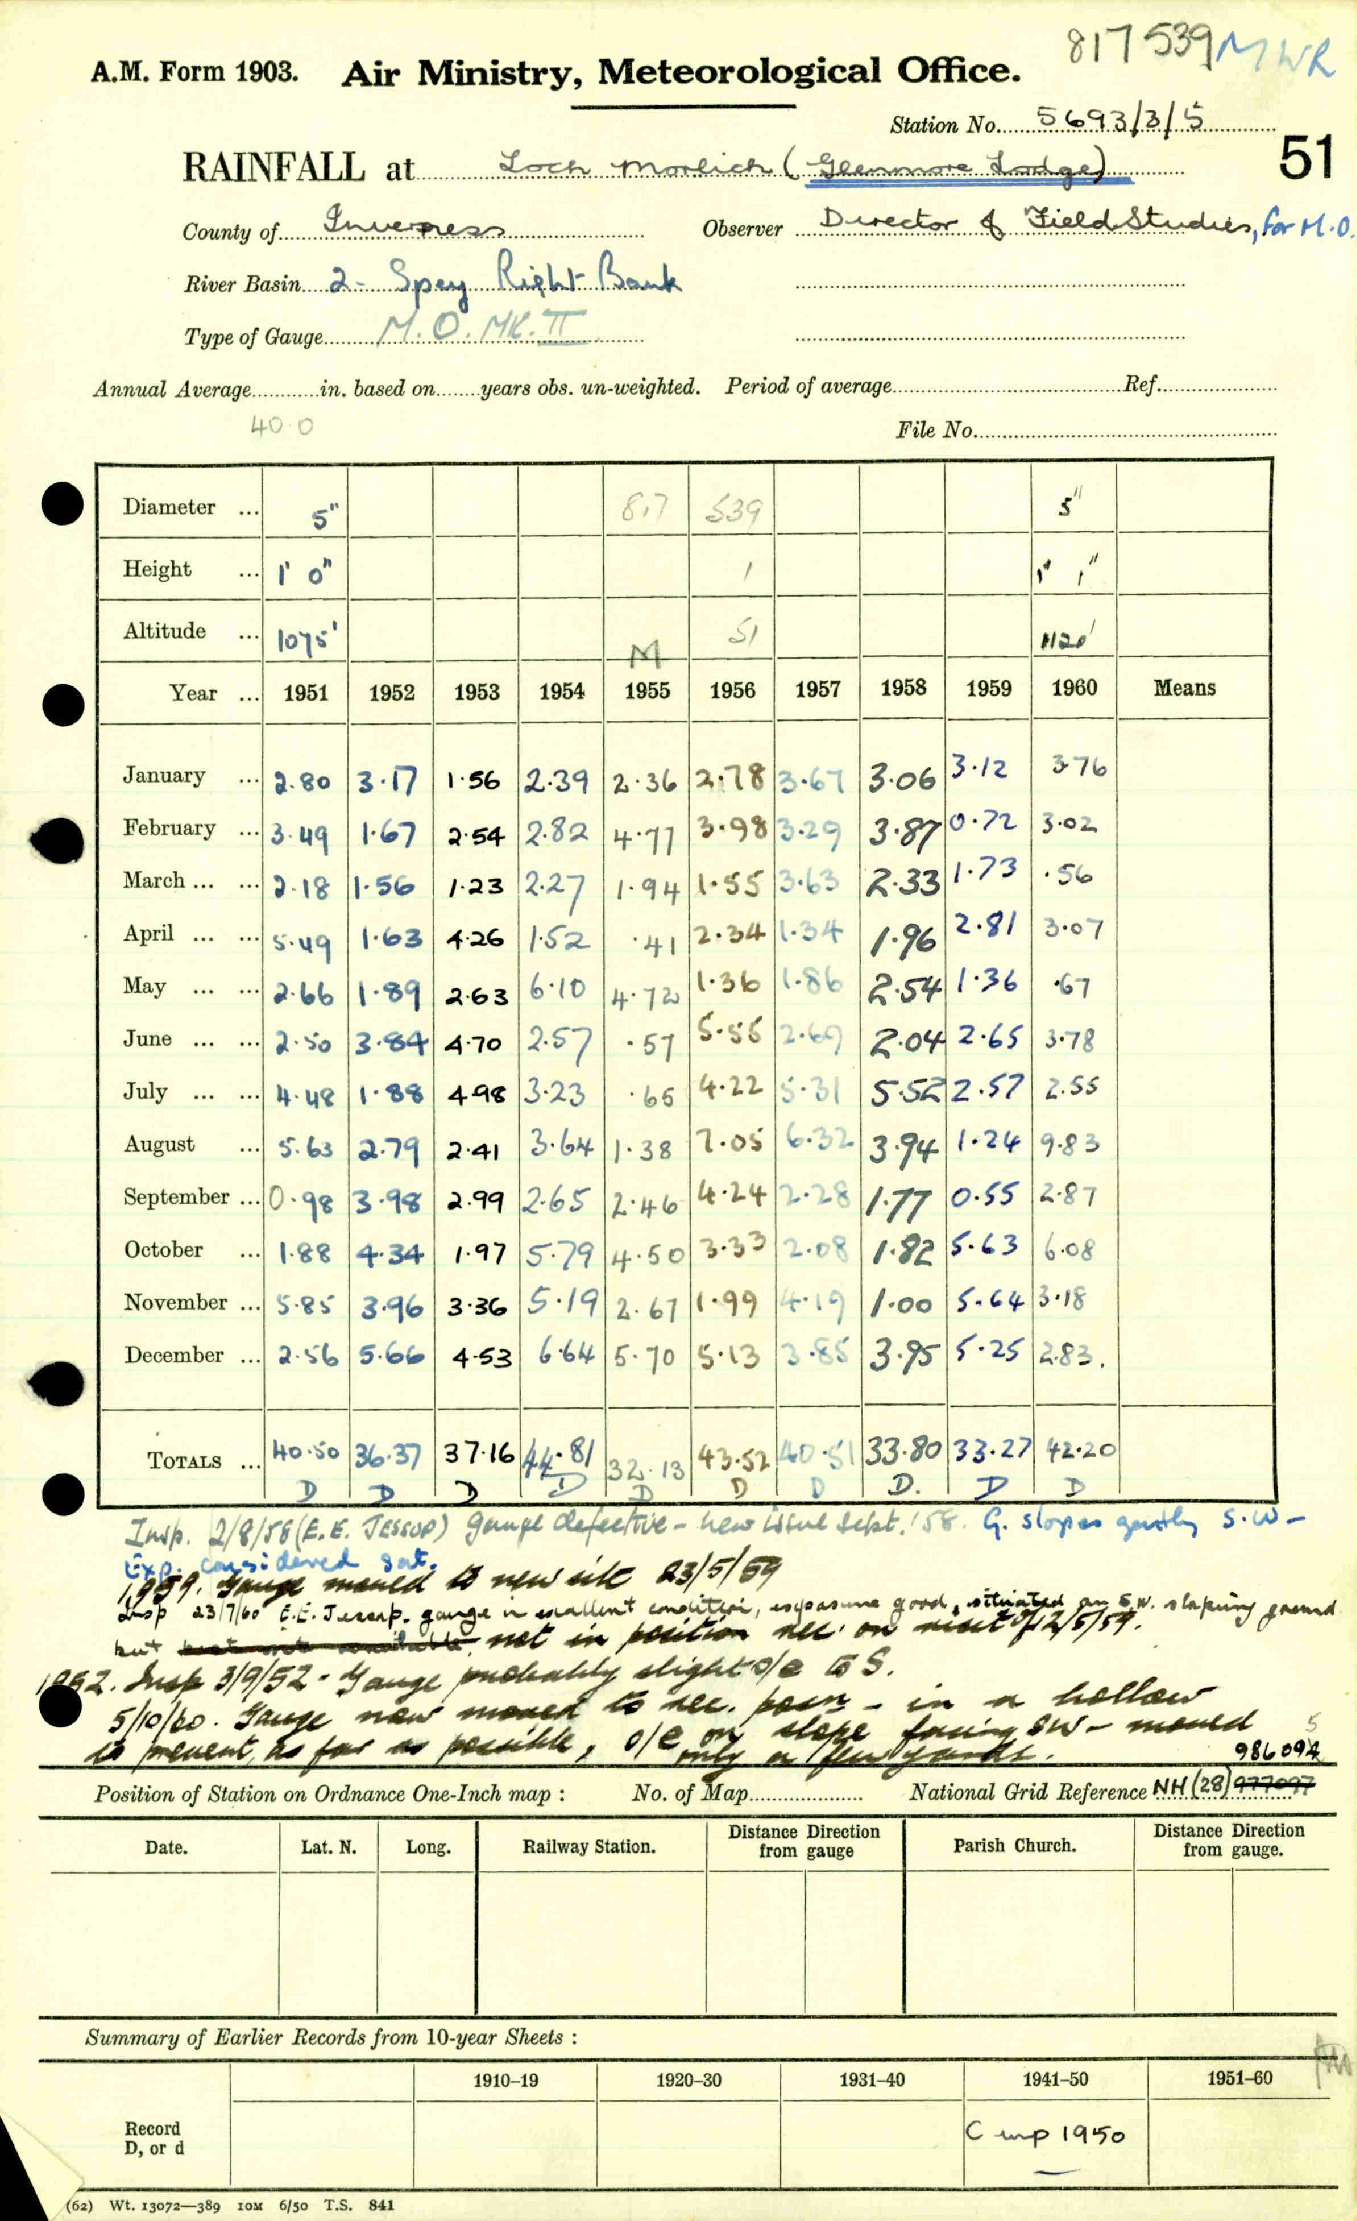 817539 MWR
A.M. Form 1903. Air Ministry, Meteorological Office.
Station No. 5693/3/5
RAINFALL at Loch Morlich (Glenmore Lodge) 51
County of Inverness Observer Director of Field Studies, for M.O.
River Basin 2 - Spey Right Bank
Type of Gauge M.O. MK. II
Annual Average in. based on years obs. un-weighted. Period of average Ref.
40.0
File No.
Diameter ... 5" 817 539 5"
Height ... 1' 0" 1 1' 1"
Altitude ... 1075' M 51 1120'
Year ... 1951 1952 1953 1954 1955 1956 1957 1958 1959 1960 Means
January ... 2.80 3.17 1.56 2.39 2.36 2.78 3.67 3.06 3.12 3.76
February ... 3.49 1.67 2.54 2.82 4.77 3.98 3.29 3.87 0.72 3.02
March ... ... 2.18 1.56 1.23 2.27 1.94 1.55 3.63 2.33 1.73 .56
April ... ... 5.49 1.63 4.26 1.52 .41 2.34 1.34 1.96 2.81 3.07
May ... ... 2.66 1.89 2.63 6.10 4.72 1.36 1.86 2.54 1.36 .67
June ... ... 2.50 3.84 4.70 2.57 .57 5.55 2.69 2.04 2.65 3.78
July ... ... 4.48 1.88 4.98 3.23 .65 4.22 5.31 5.52 2.57 2.55
August ... 5.63 2.79 2.41 3.64 1.38 7.05 6.32 3.94 1.24 9.83
September ... 0.98 3.98 2.99 2.65 2.46 4.24 2.28 1.77 0.55 2.87
October ... 1.88 4.34 1.97 5.79 4.50 3.33 2.08 1.82 5.63 6.08
November ... 5.85 3.96 3.36 5.19 2.67 1.99 4.19 1.00 5.64 3.18
December ... 2.56 5.66 4.53 6.64 5.70 5.13 3.85 3.95 5.25 2.83.
TOTALS ... 40.50 36.37 37.16 44.81 32.13 43.52 40.51 33.80 33.27 42.20
D D D D D D D D. D D
Insp. 2/8/58 (E.E. JESSUP) gauge defective - new issue Sept. '58. G. slopes gently S.W -
Exp. considered sat.
1959. Gauge moved to new site 23/5/59
Insp 23/7/60 E.E. Jessup. gauge in excellent condition, exposure good, situated on S.W. sloping ground
but not in position rec. on visit of 12/5/59.
1952. Insp 3/9/52 - Gauge probably slight o/e to S.
5/10/60. Gauge now moved to rec. posn - in a hollow
to prevent, as far as possible, o/e on slope facing SW - moved
only a few yards.
5
986094
Position of Station on Ordnance One-Inch map : No. of Map National Grid Reference NH (28) 977097
Date. Lat. N. Long. Railway Station. Distance Direction from gauge Parish Church. Distance Direction from gauge.
Summary of Earlier Records from 10-year Sheets :
1910–19 1920–30 1931–40 1941–50 1951–60
Record
D, or d
C imp 1950
(62) Wt. 13072—389 10M 6/50 T.S. 841